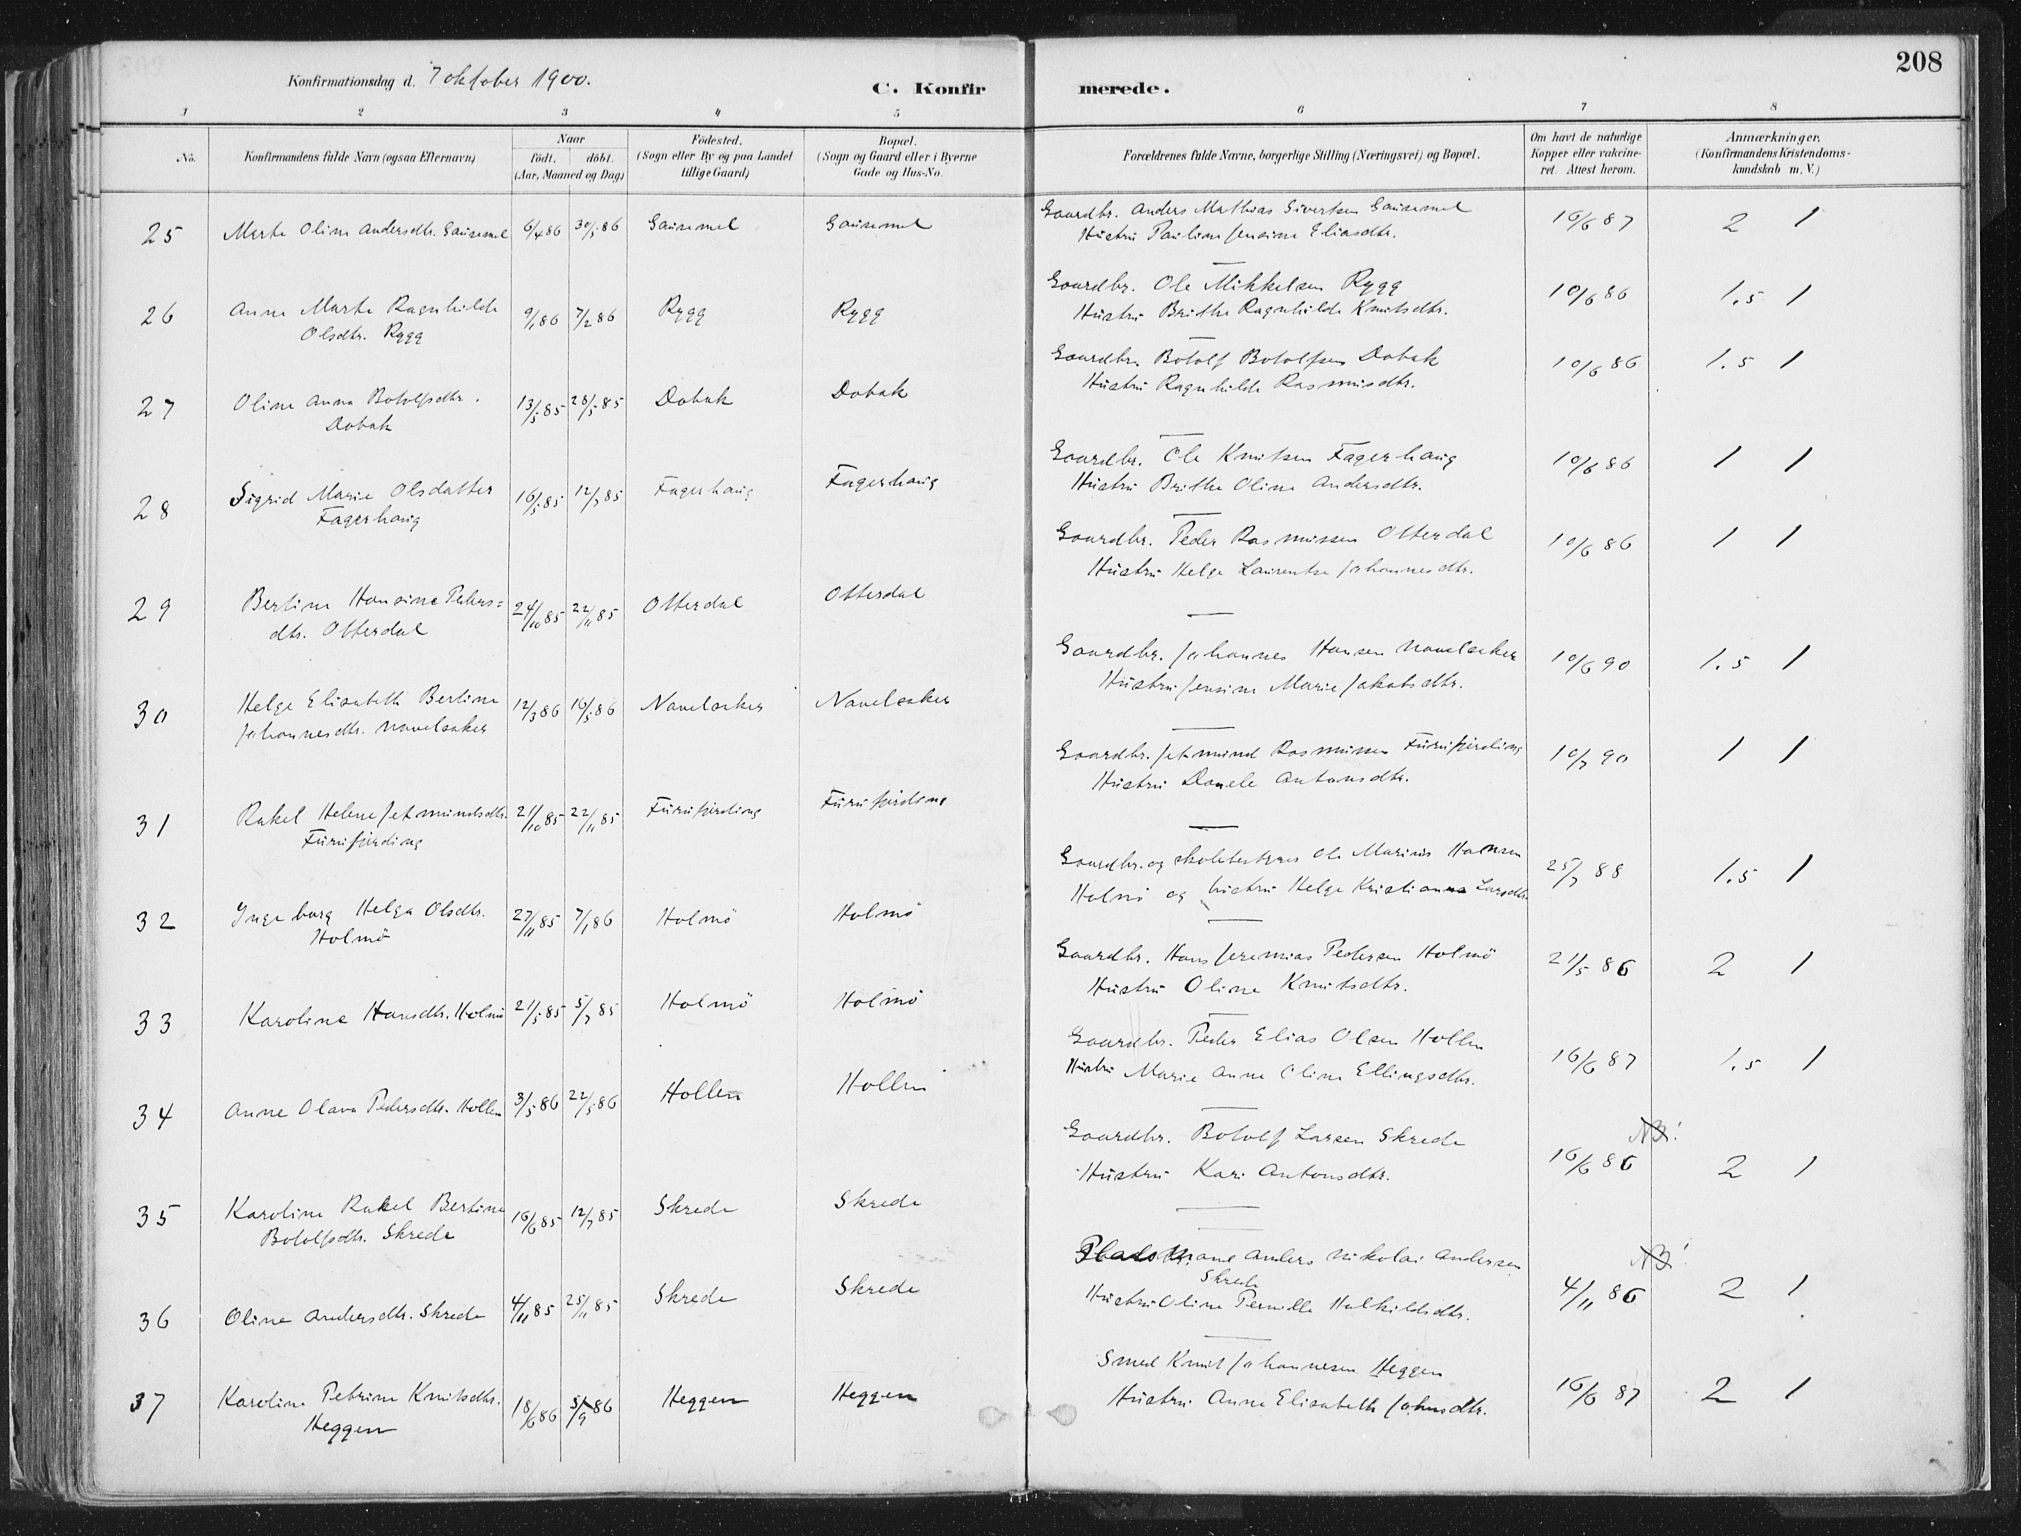 208
Konfirmationsdag d. 7 oktober 1900.
C. Konfir merede.
1 2 3 4 5 6 7 8
No.
Konfirmandens fulde Navn (ogsaa Efternavn)
Naar
födt. döbt.
(Aar, Maaned og Dag)
Födested.
(Sogn eller By og paa Landet
tillige Gaard)
Bopæl.
(Sogn og Gaard eller i Byerne
Gade og Hus-No.
Forældrenes fulde Navne, borgerlige Stilling (Næringsvei) og Bopæl.
Om havt de naturlige
Kopper eller vakcine-
ret. Attest herom.
Anmærkninger.
(Konfirmandens Kristendoms-
kundskab m. V.)
25 Marte Oline Andersdtr. Gausemel 6/4 86 30/5 86 Gausemel Gausemel
Gaardbr. Anders Mathias Sivertsen Gausemel 16/6 87 2 1
Hustru Pauline Jensine Eliasdtr.
26 Anne Marte Ragnhilde 9/1 86 7/2 86 Rygg Rygg
Olsdtr. Rygg
Gaardbr. Ole Mikkelsen Rygg 10/6 86 1.5 1
Hustru Brithe Ragnhilde Knutsdtr.
27 Oline Anna Botolfsdtr. 13/5 85 28/5 85 Dobak Dobak
Dobak
Gaardbr. Botolf Botolfsen Dobak 10/6 86 1.5 1
Hustru Ragnhilde Rasmusdtr.
28 Sigrid Marie Olsdatter 16/5 85 12/7 85 Fagerhaug Fagerhaug
Fagerhaug
Gaardbr. Ole Knutsen Fagerhaug 10/6 86 1 1
Hustru Brithe Oline Andersdtr.
29 Bertine Hansine Peders= 24/10 85 22/11 85 Otterdal Otterdal
dtr. Otterdal
Gaardbr. Peder Rasmussen Otterdal 10/6 86 1 1
Hustru Helge Laurentse Johannesdtr.
30 Helge Elisabeth Bertine 12/3 86 16/5 86 Navelsaker Navelsaker
Johannesdtr. Navelsaker
Gaardbr. Johannes Hansen Navelsaker 10/6 90 1.5 1
Hustru Jensine Marie Jakobsdtr.
31 Rakel Helene Jetmundsdtr. 21/10 85 22/11 85 Furufjerding Furufjerding
Furufjerding
Gaardbr. Jetmund Rasmussen Furufjerding 10/7 90 1 1
Hustru Danele Antonsdtr.
32 Ingeborg Helga Olsdtr. 27/11 85 7/1 86 Holmö Holmö
Holmö
Gaardbr. og skolebestyrer Ole Marius Hansen 25/7 88 1.5 1
Holmö og hustru Helge Kristianna Larsdtr.
33 Karoline Hansdtr. Holmö 21/5 85 5/7 85 Holmö Holmö
Gaardbr. Hans Jeremias Pedersen Holmö 21/5 86 2 1
Hustru Oline Knutsdtr.
34 Anne Olava Pedersdtr. Hollen 3/5 86 22/5 86 Hollen Hollen
Gaardbr. Peder Elias Olsen Hollen 16/6 87 1.5 1
Hustru Marie Anne Oline Ellingsdtr.
35 Karoline Rakel Bertine 16/6 85 12/7 85 Skrede Skrede
Botolfsdtr. Skrede
Gaardbr. Botolf Larsen Skrede NB!
Hustru Kari Antonsdtr. 16/6 86 2 1
36 Oline Andersdtr. Skrede 4/11 85 25/11 85 Skrede Skrede
Anders Nikolai Andersen NB!
Skrede
Hustru Oline Pernille Halkildsdtr. 4/11 86 2 1
37 Karoline Petrine Knutsdtr. 18/6 86 5/9 86 Heggen Heggen
Heggen
Smed Knut Johannesen Heggen
Hustru Anne Elisabeth Johnsdtr. 16/6 87 2 1